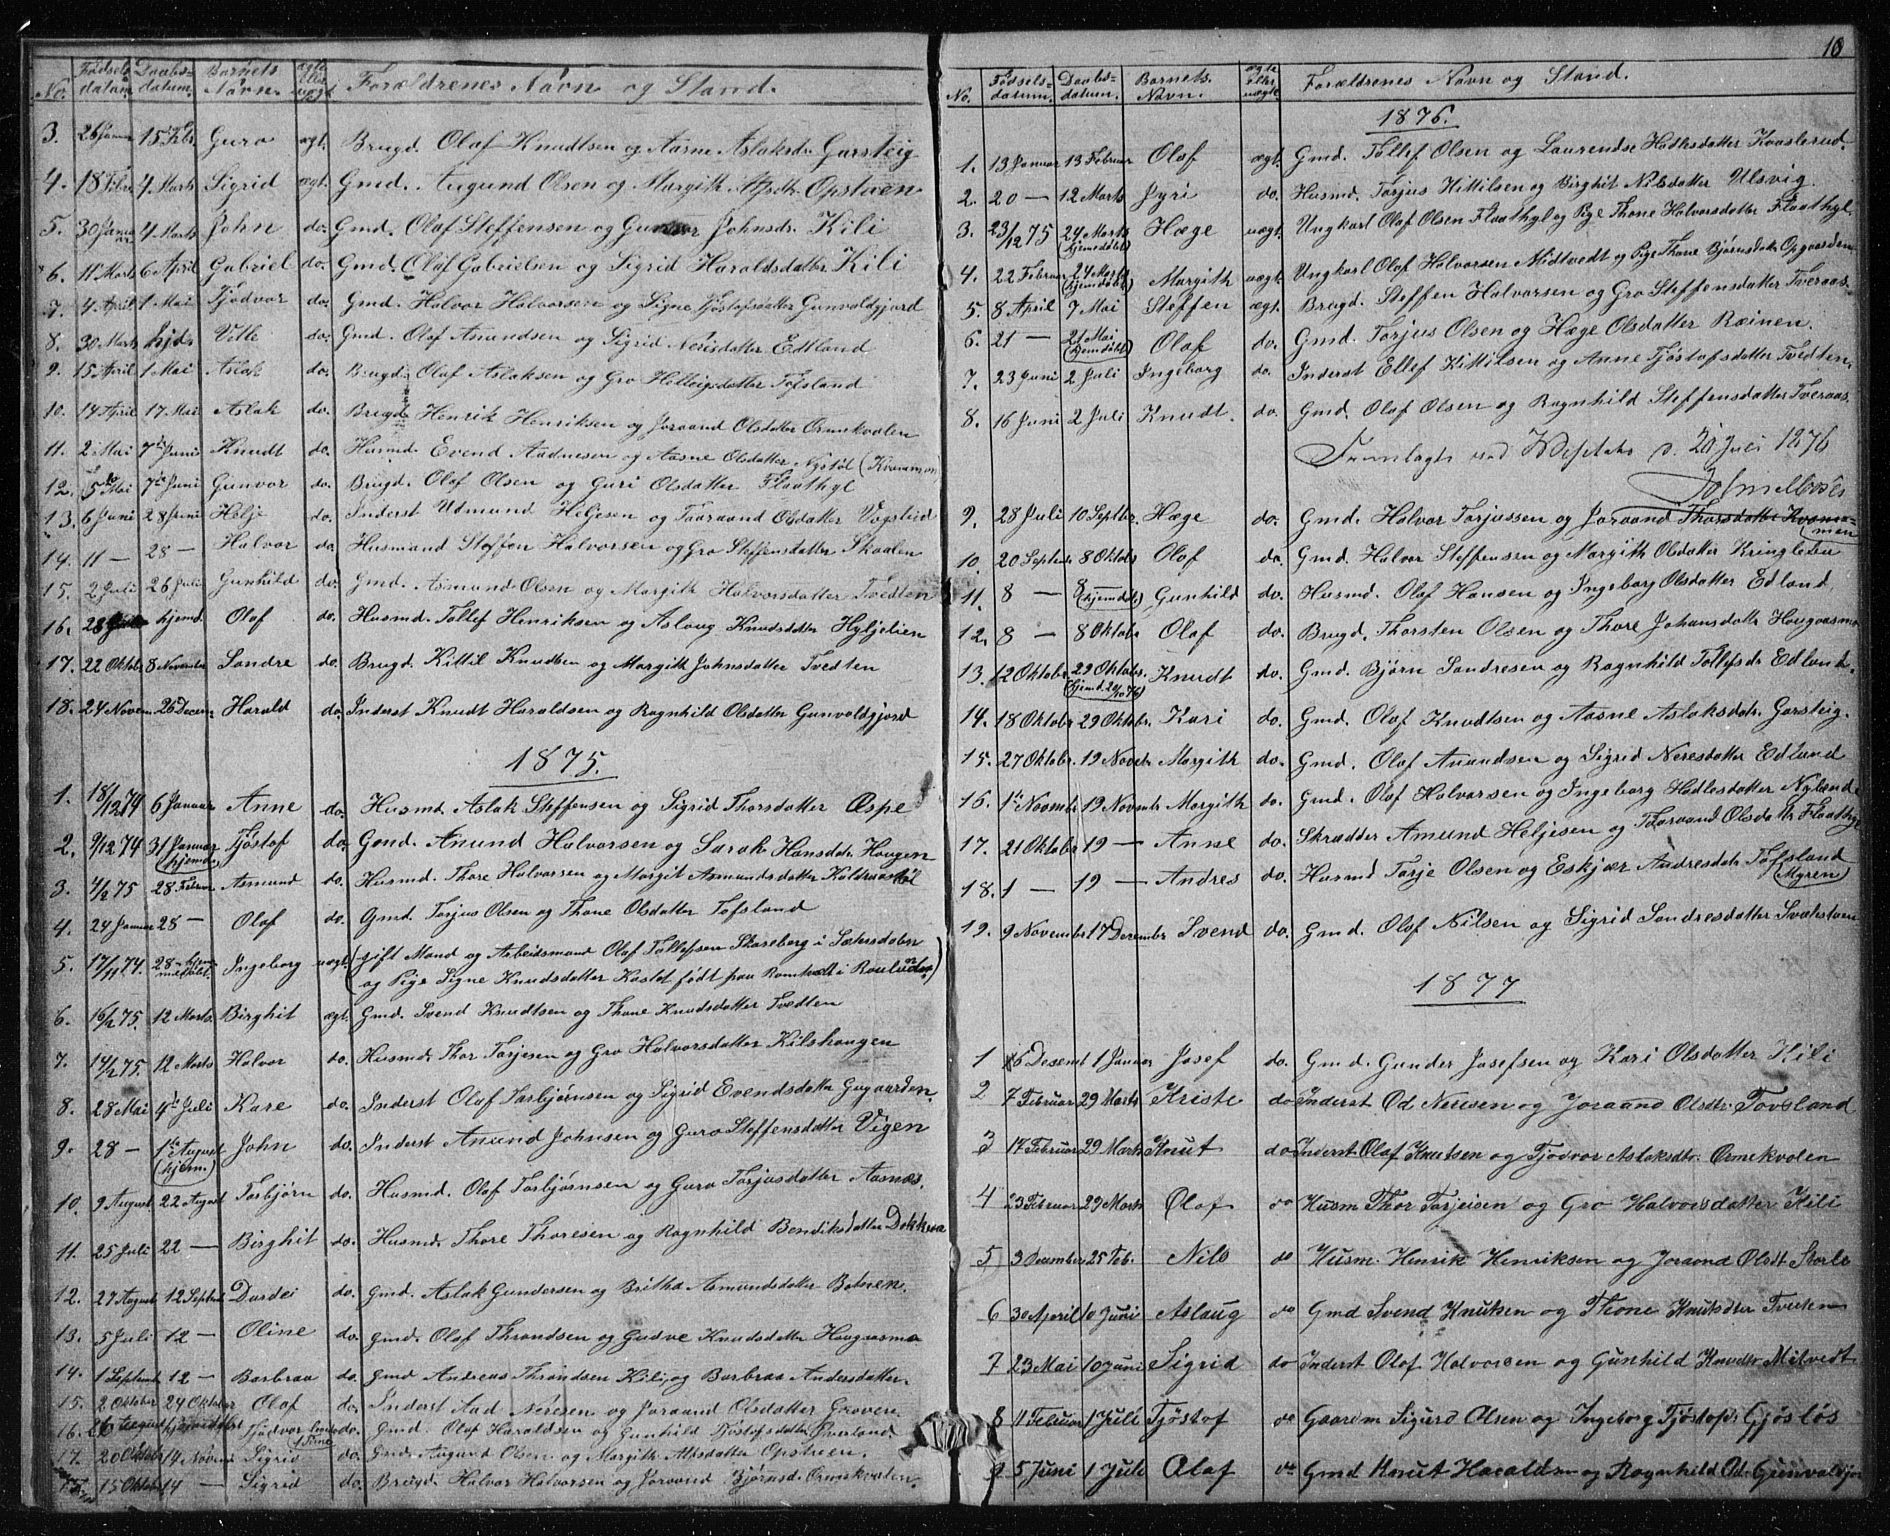 No. Fødsels-datum. Daabs-datum. Barnets Navn. ægte eller uægt. Forældrenes Navn og Stand.
3. 26 Januar 15 Febr. Guro ægt. Brugd. Olaf Knudtsen og Aasne Aslaksdr. Garsteig
4. 18 Febr. 4 Marts Sigrid ægt. Gmd. Augund Olsen og Margith Alfsdtr. Opstveen
5. 30 Januar 4 Marts John do. Gmd. Olaf Steffensen og Gunvor Johnsdr. Kili
6. 11 Marts 6 April Gabriel do. Gmd. Olaf Gabrielsen og Sigrid Haraldsdatter Kili
7. 4 April 1 Mai Tjødvor do. Gmd. Halvor Halvorsen og Signe Tjøstofsdatter Gunvaldgjord
8. 30 Marts hjd. Vetle do. Gmd. Olaf Amundsen og Sigrid Nerisdatter Edtland
9. 15 April 1 Mai Aslak do. Brugd. Olaf Aslaksen og Gro Helleigsdatter Tofsland
10. 14 April 17 Mai Aslak do. Brugd. Henrik Henriksen og Joraand Olsdatter Ormekvalen
11. 2 Mai 7de Juni Knudt do. Husmd. Evend Aadnesen og Aasne Olsdatter Nystøl (Kvammen)
12. 5 Mai 7de Juni Gunvor do. Brugd. Olaf Olsen og Guri Olsdatter Flaathyl
13. 6 Juni 28 Juni Helje do. Inderst Udmund Heljesen og Taaraand Olsdatter Vogsteid
14. 11 — 28 — Halvor do. Husmand Steffen Halvorsen og Gro Steffensdatter Skaalen
15. 2 Juli 26 Juli Gunhild do. Gmd. Asmund Olsen og Margith Halvorsdatter Tvedten
16. 28 hjemd. Olaf do. Husmd. Tollef Henriksen og Aslaug Knudsdatter Hyljelien
17. 22 Oktobr 8 November Sondre do. Brugd. Kittil Knudtsen og Margith Johnsdatter Tvedten
18. 24 Novem. 26 Decem. Harald do. Inderst Knudt Haraldsen og Ragnhild Olsdatter Gunvaldgjord
1875.
1. 18/12 74 6 Januar Anne do. Husmd. Aslak Steffensen og Sigrid Thorsdatter Øspe
2. 9/12 74 31 Januar (hjemdø) Tjøstof do. Gmd. Anund Halvorsen og Sarak Hansdatr. Hougen
3. 4/2 75 28 Februar Asmund do. Husmd. Thore Halvorsen og Margit Asmundsdatter Koldraastøl
4. 24 Januar 28 — Olaf do. Gmd. Torjus Olsen og Thone Olsdatter Tofsland
5. 17/11 74. 28 — Ingeborg uægt. (gift Mand og Arbeidsmand Olaf Tollefsen Skareberg i Sætersdalen
og Pige Signe Knudsdatter Kostet født paa Romtvedt i Rauland)
6. 16/2 75. 12 Marts. Birghit ægt. Gmd. Svend Knudtsen og Thone Knudsdatter Tvedten
7. 14/2 75. 12 Marts Halvor do. Husmd. Thor Torjesen og Gro Halvorsdatter Kilshaugen
8. 28 Mai 4de Juli Kare do. Inderst Olaf Torbjørnsen og Sigrid Evendsdatter Gugaarden.
9. 28 — 1ste August (hjem.) John do. Inderst Anund Johnsen og Guro Steffensdatter Vigen
10. 9 August 22 August Torbjørn do. Husmd. Olaf Torbjørnsen og Guro Torjusdatter Aasnæs.
11. 25 Juli 22 — Birghit do. Husmd. Thore Thoresen og Ragnhild Bendiksdatter Dokkraa
12. 27 August 12 Septmb Dordei do. Gmd. Aslak Gundersen og Britha Asmundsdatter Botnen.
13. 5 Juli 12 — Oline do. Gmd. Olaf Throndsen og Gudve Knudsdatter Hougaasmo
14. 1 Septemb 12 — Barbraa do. Gmd Andreas Throndsen Kili og Barbraa Andersdatter.
15. 2 Oktober 24 Oktober Olaf do. Inderst Aad Neresen og Joraand Olsdatter Groven
16. 26 August hjemmedøbt Tjødvor do. Gmd. Olaf Haraldsen og Gunhild Tjøstofsdatter Øverland
17. 20 Oktobr 14 Novem Sigrid do. Gmd. Augund Olsen og Margith Alfsdatter Opstveen.
15 Oktobr 14 — Sigrid do. Brugd. Halvor Halvorsen og Joraand Bjørnsd. Ormekvalen.
10
No. Fødsels-datum. Daabs-datum. Barnets Navn. ægte eller uægte. Forældrenes Navn og Stand.
1876.
1. 13 Januar 13 Februar Olaf ægt. Gmd. Tollef Olsen og Laurendse Kvaalerud.
2. 20 — 12 Marts Jyri do. Husmd. Torjus Kittilsen og Birghit Nilsdatter Ulsvig.
3. 23/12 75 24 Marts (hjemdøbt) Hæge uægt. Ungkarl Olaf Olsen Flaathyl og Pige Thone Halvorsdatter Flaathyl.
4. 22 Februar 24 Marts (hjemdøbt) Margith uægt. Ungkarl Olaf Halvorsen Midtvedt og Pige Thone Bjørnsdatr Opgaarden
5. 8 April 7 Mai Steffen ægt. Brugd. Steffen Halvorsen og Gro Steffensdatter Tveraas.
6. 21 — 21 Mai (hjemdøbt) Olaf do. Gmd. Torjus Olsen og Hæge Olsdatter Ræinen.
7. 23 Juni 2 Juli Ingeborg do. Inderst Ellef Kittilsen og Anne Tjøstofsdatter Tvedten.
8. 16 Juni 2 Juli Knudt. do. Gmd. Olaf Olsen og Ragnhild Steffensdatter Tveraas.
Fremlagt ved d. 20 Juli 1876
9. 28 Juli 10 Septbr. Hæge do. Gmd. Halvor Torjussen og Joraand Thorsdatter Kvammen
10. 20 Septembr 8 Oktobr Olaf do. Gmd. Halvor Steffensen og Margith Olsdatter Kringleli
11. 8 — 8 — (hjemdøbt) Gunhild do. Husmd. Olaf Hansen og Ingeborg Olsdatter Edland
12. 8 — 8 Oktobr Olaf do. Brugd. Thorsten Olsen og Thore Johansdatter Hougaasmo
13. 12 Oktobr 29 Oktobr. (hjemd. 20/10 76) Knudt do. Gmd. Bjørn Sondresen og Ragnhild Tollefsdr. Edland.
14. 18 Oktobr 29 Oktobr. Kari do. Gmd. Olaf Knudtsen og Aasne Aslaksdatr. Garsteig.
15. 27 Oktobr. 19 Novebr Margith do. Gmd. Olaf Anundsen og Sigrid Neresdatter Edland
16. 1ste Novembr 19 Novembr Margith do. Gmd. Olaf Halvorsen og Ingeborg Hadlesdatter Nylænd
17. 21 Oktobr 19 — Anne do. Skrædder Amund Heljesen og Taaraand Olsdatter Flaathyl
18. 1 — 19 — Andres do. Husmd Torje Olsen og Eskjær Andresdatr Tofsland (Myren)
19. 9 November 17 Decembr Svend do. Gmd. Olaf Nilsen og Sigrid Sondresdatter Svalestveen
1877
1 16 Desemb 1 Januar Josef do. Gmd. Gunder Josefsen og Kari Olsdatter Kili
2 7 Februar 29 Marts Kriste do Inderst Od Neresen og Joraand Olsdtr. Tovsland
3 17 Februar 29 Marts Knut do Inderst Olaf Knutsen og Tjodvor Aslaksdtr. Ormekvalen
4 23 Februar 29 Marts Olaf do Husm Thor Torjeisen og Gro Halvorsdatter Kili
5 3 December 25 Feb. Nils do Husm. Henrik Henriksen og Joraand Olsdt Storli
6 30 April 10 Juni Aslaug do Gmd Svend Knutsen og Thone Knutsdter Tveiten
7 23 Mai 10 Juni Sigrid do Inderst Olaf Halvorsen og Gunhild Knudtr Mitvedt
8 11 Februar 1 Juli Tjøstof do Gaardm Sigurd Olsen og Ingeborg Tjøstofs. Gjøsløs
9 5 Juni 1 Juli Olaf do Gmd Knut Haraldsen og Ragnhild Od. Gunvaldjor